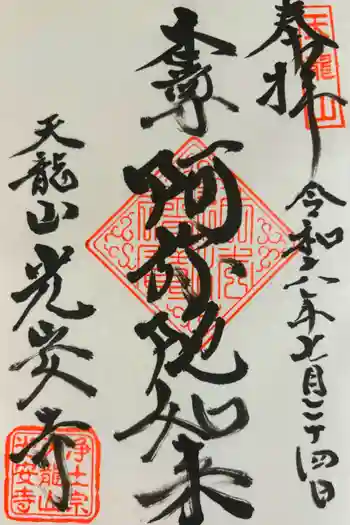 天龍山
奉拝
令和六年七月二十四日
本尊
阿弥陀如来
天龍山
光安寺
浄土宗
天龍山
光安寺